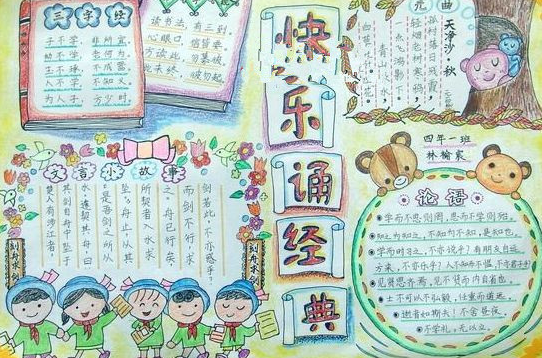 三字经
子不学 非所宜
幼不学 老何为
玉不琢 不成器
人不学 不知义
为人子 方少时
读书法,有三到,
心眼口,信皆要。
方读此,勿慕彼,
此未终,彼勿起。
快乐诵经典
元曲
天净沙·秋
孤村落日残霞,
轻烟老树寒鸦,
一点飞鸿影下。
青山绿水,
白草
四年一班
林榆宸
文言小故事
楚人有涉江者,
其剑自舟中坠于
水,遽契其舟,曰:
“是吾剑之所从
坠。”舟止,从其
所契者入水求
之。舟已行矣,
而剑不行,求
剑若此,不亦惑乎?
刻舟求剑
刻舟求剑
论语
学而不思则罔,思而不学则殆。
知之为知之,不知为不知,是知也。
学而时习之,不亦说乎?有朋自远
方来,不亦乐乎?人不知而不愠,不亦君子乎?
见贤思齐焉,见不贤而内自省也。
士不可以不弘毅,任重而道远。
逝者如斯夫!不舍昼夜。
不学礼,无以立。